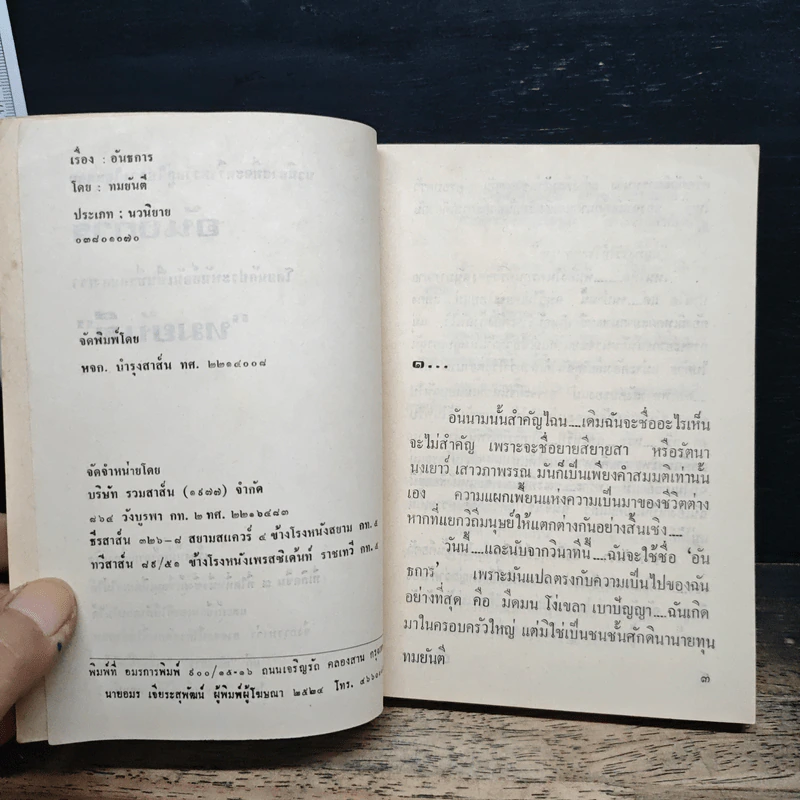 เรื่อง : อันธการ
โดย : ทมยันตี
ประเภท : นวนิยาย
๐๓๘๐๑๐๗๐
จัดพิมพ์โดย
หจก. บำรุงสาส์น ทศ. ๒๒๑๔๐๐๘
จัดจำหน่ายโดย
บริษัท รวมสาส์น (๑๙๗๗) จำกัด
๘๖๔ วังบูรพา กท. ๒ ทศ. ๒๒๑๖๔๘๓
ธีรสาส์น ๓๒๖–๘ สยามสแควร์ ๔ ข้างโรงหนังสยาม กท. ๕
ทวีสาส์น ๘๙/๕๑ ข้างโรงหนังเพรสซิเด้นท์ ราชเทวี กท. ๕
พิมพ์ที่ อมรการพิมพ์ ๙๐๐/๑๕-๑๖ ถนนเจริญรัถ คลองสาน
นายอมร เจียระสุพัฒน์ ผู้พิมพ์ผู้โฆษณา ๒๕๒๔ โทร.
๑...
อันนามนั้นสำคัญไฉน....เดิมฉันจะชื่ออะไรเห็น
จะไม่สำคัญ เพราะจะชื่อยายสียายสา หรือรัตนา
นงเยาว์ เสาวภาพรรณ มันก็เป็นเพียงคำสมมติเท่านั้น
เอง ความแผกเพี้ยนแห่งความเป็นมาของชีวิตต่าง
หากที่แยกวิถีมนุษย์ให้แตกต่างกันอย่างสิ้นเชิง....
วันนี้....และนับจากวินาทีนี้....ฉันจะใช้ชื่อ 'อัน
ธการ' เพราะมันแปลตรงกับความเป็นไปของฉัน
อย่างที่สุด คือ มืดมน โง่เขลา เบาปัญญา....ฉันเกิด
มาในครอบครัวใหญ่ แต่มิใช่เป็นชนชั้นศักดินานายทุน
ทมยันตี
๓